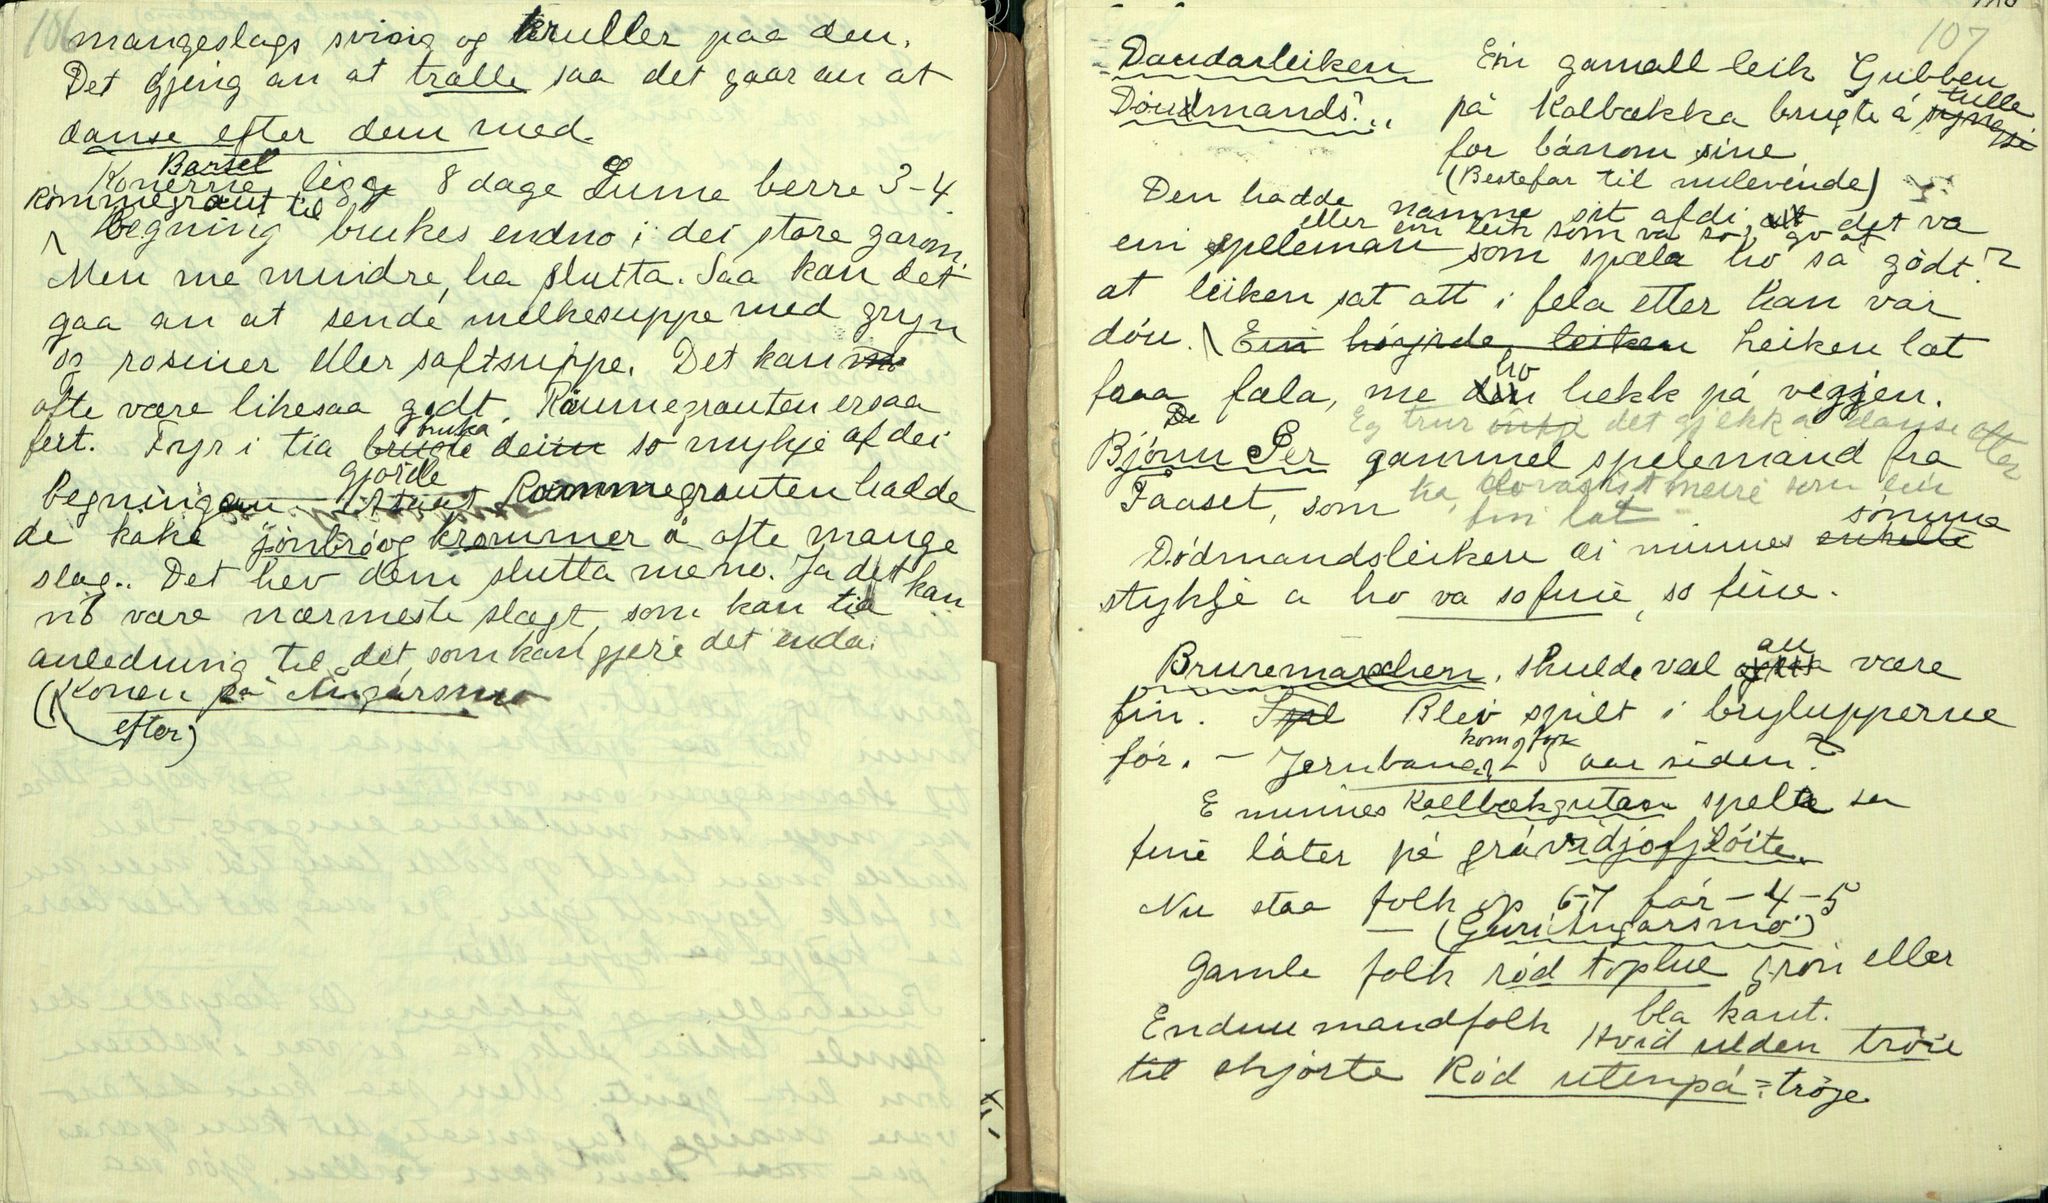 106
mangeslags sving og kruller paa den.
Det gjeng an at tralle saa det gaar an at
danse efter dem med.
Barsel
Konerne, ligge 8 dage Sume berre 3-4.
Rømmegraut til
Begning brukes endno i dei store garom.
Men me mindre, ha slutta. Saa kan det
gaa an at sende melkesuppe med gryn
og rosiner eller saftsuppe. Det kan
ofte være likesaa godt. Rømmegrauten er saa
feit. Fyr i tia brugte bruka so mykje af dei
begningan. gjorde Rommegrauten hadde
de kake og krommer å ofte mange
slag.. Det hev dem slutta me no. Ja det kan
no være nærmeste slægt, som kan ta
anledning til det, som kan gjere det enda.
(Konen på Angårsmo
efter)
107
Daudarleiken Ein gamall leik Gubben
Døudmands?" på Kolbækka brugte å tulle
for bånnom sine
(Bestefar til nulevende)
Den hadde namne sit afdi, det va
eller ein leik som va so go at
ein speleman som spæla ho så gôdt?
at leiken sat att i fela etter han var
døu. Ein høyrde leiken Leiken læt
fraa fæla, me ho hekk på veggen.
Eg trur det gjekk å danse efter
De
Bjønn Per gammel spelemand fra
Faaset, som
fin låt
sømme
Dødmandsleiken ei minnes enkelte
stykje a ho va so fine, so fine.
Bruremarchen, skulde væl au være
fin. Spel Blev spilt i bryllupperne
før. - Jernbane kom for 25 aar siden?
E minnes Kallbækgutan spelte so
fine låter på gråvidjofjløite.
Nu staa folk op 6-7 før - 4-5
(Guri Angarsmo)
Gamle folk rød toplue grøn eller
blå kant.
Endnu mandfolk Kvid ulden trøie
til skjorte Rød utenpå = trøje